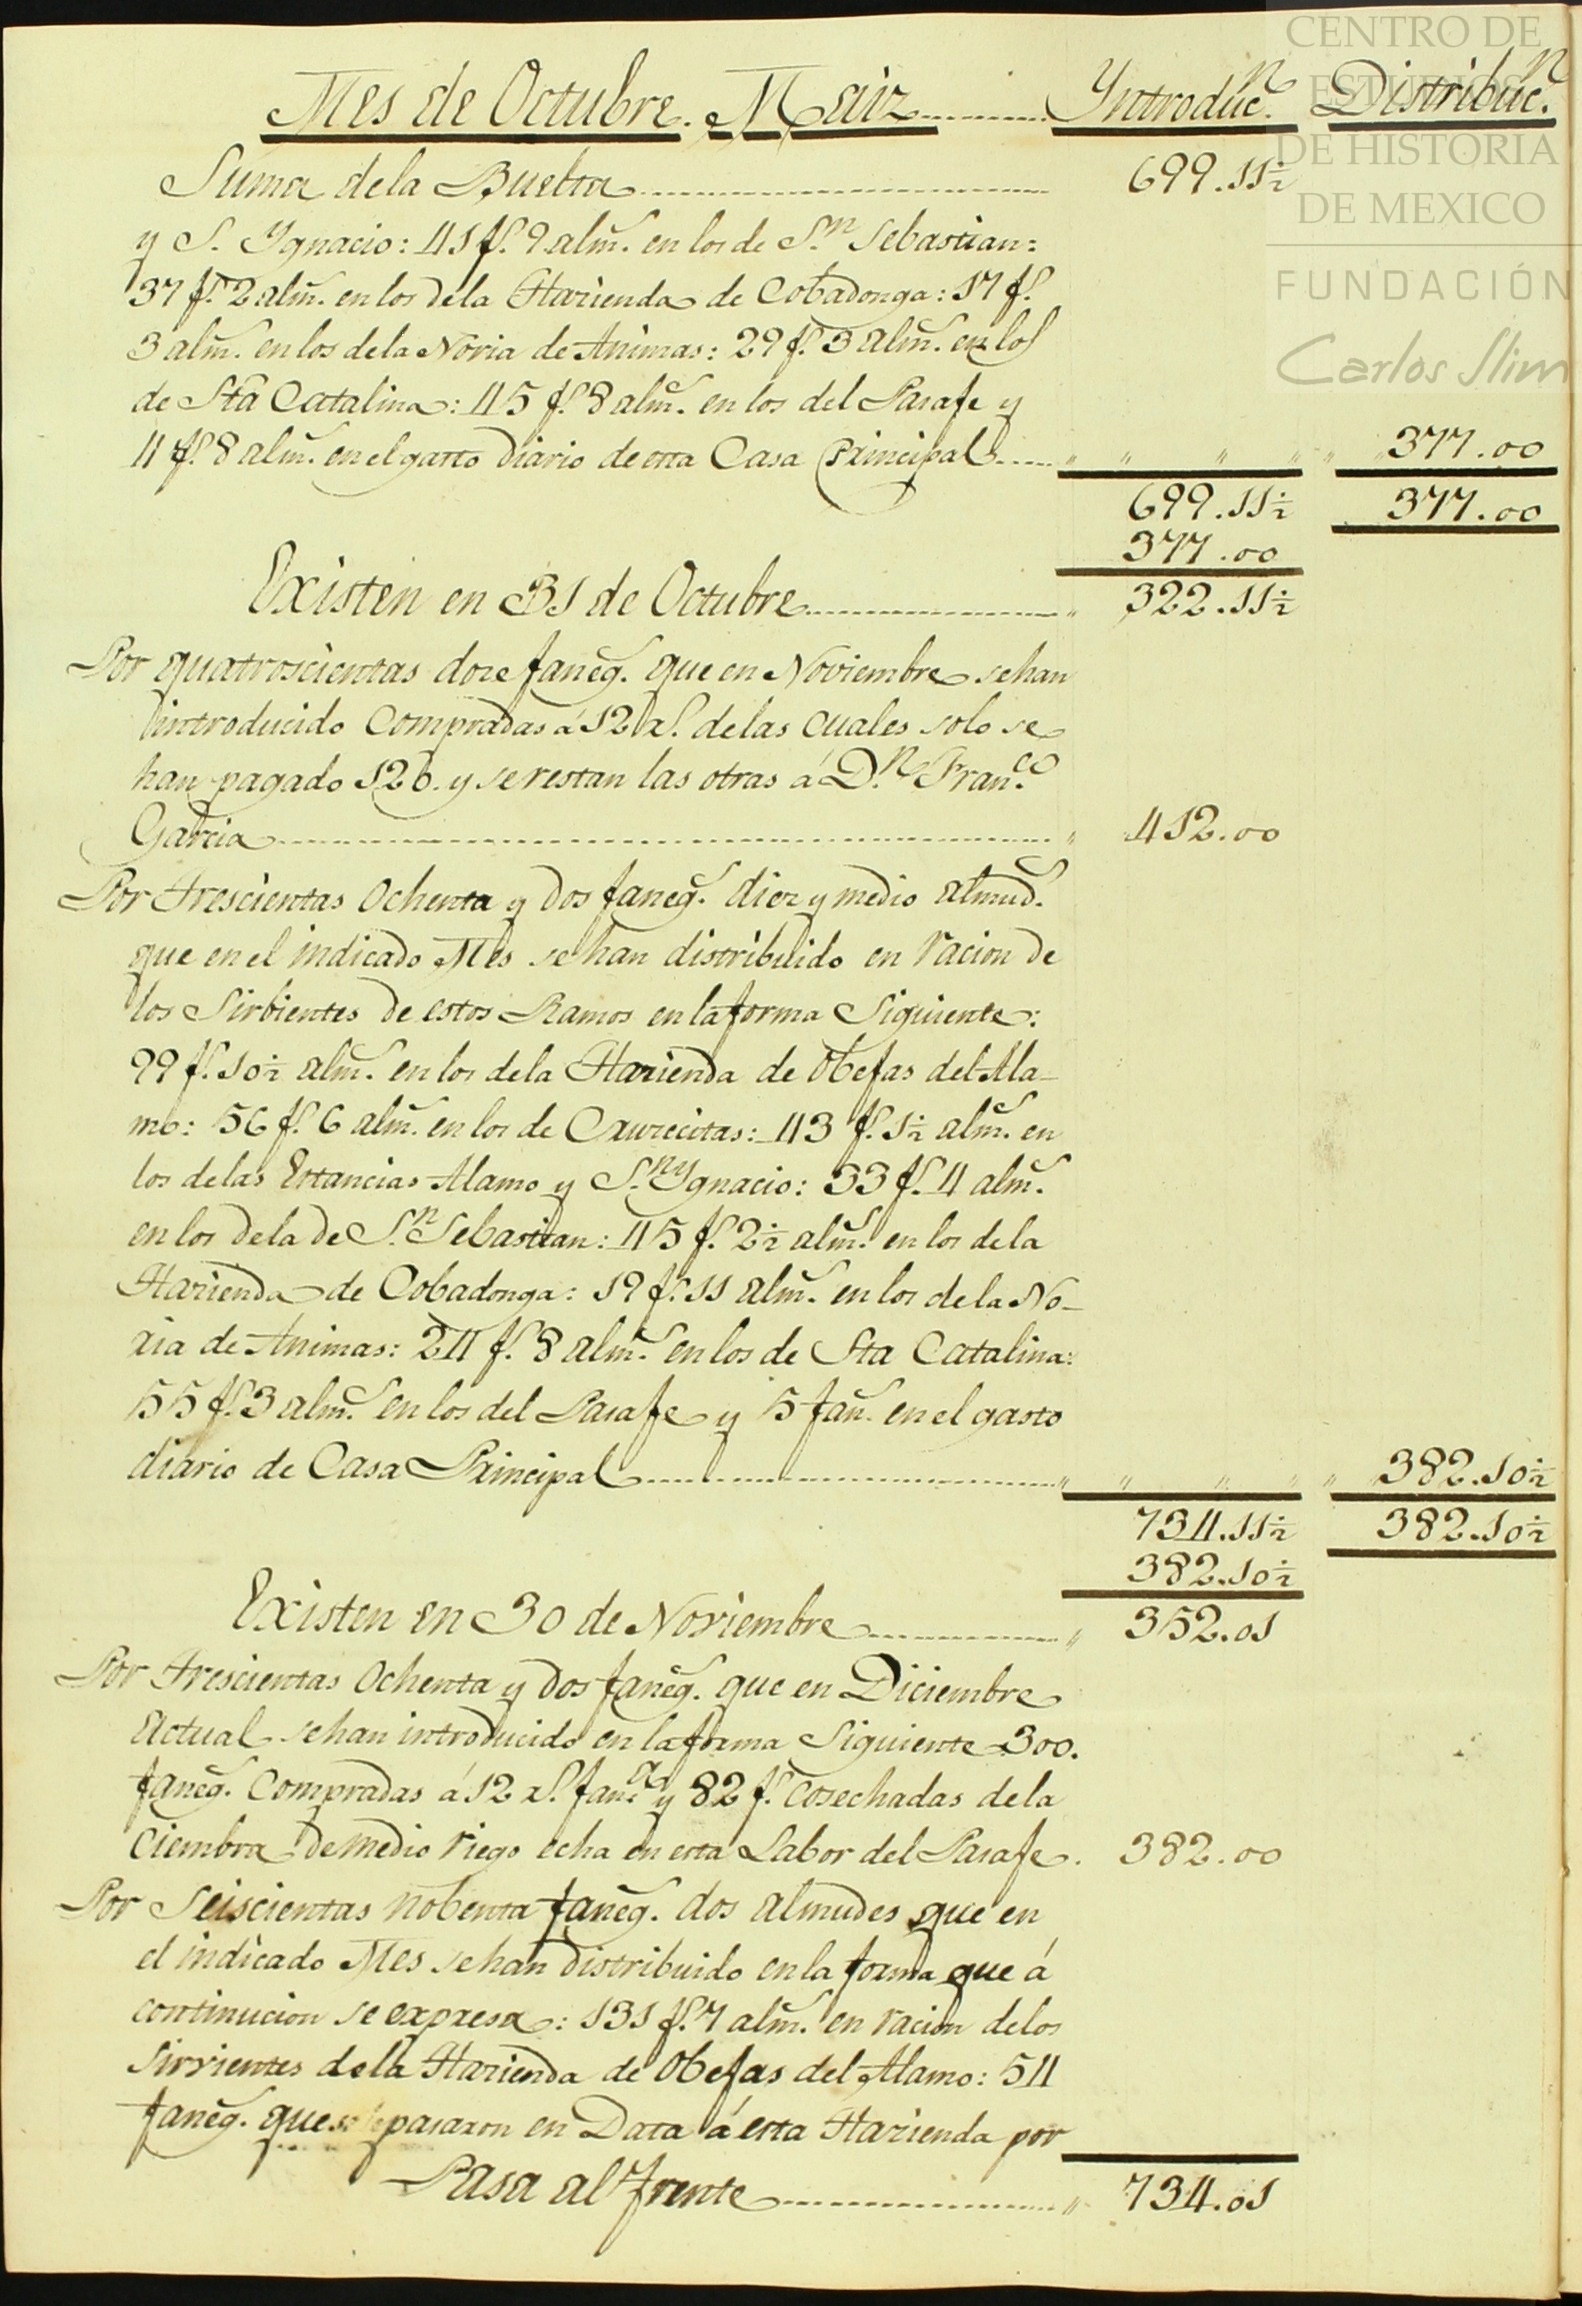 CENTRO DE
ESTUDIOS
DE HISTORIA
DE MEXICO
FUNDACIÓN
Carlos Slim
Mes de Octubre. Maiz Yntroduc.n Distribuc.n
Suma de la Buelta 699.11½
y S. Ygnacio: 41 f.s 9 alm.s en los de S.n Sebastian:
37 f.s 2 alm.s en los de la Hazienda de Cobadonga: 17 f.s
3 alm.s en los de la Noria de Animas: 29 f.s 3 alm.s en los
de Sta Catalina: 45 f.s 8 alm.s en los del Parafe y
4 f.s 8 alm.s en el garto diario de esta Casa Principal " " " " " 377.00
699.11½ 377.00
377.00
Existen en 31 de Octubre " 322.11½
Por quatroscientas doze faneg.s que en Noviembre se han
introducido Compradas á 12 r.s de las cuales solo se
han pagado 120. y se restan las otras á D.n Fran.co
Garcia " 412.00
Por Trescientas Ochenta y dos faneg.s diez y medio almud.s
que en el indicado Mes se han distribuido en racion de
los Sirbientes de estos Ramos en la forma Siguiente:
99 f.s 10½ alm.s en los de la Hazienda de Obejas del Ala-
mo: 56 f.s 6 alm.s en los de Cruzecitas: 43 f.s 1½ alm.s en
los de las Estancias Alamo y S.n Ygnacio: 33 f.s 4 alm.s
en los de la de S.n Sebastian: 45 f.s 2½ alm.s en los de la
Hazienda de Cobadonga: 19 f.s 11 alm.s en los de la No-
ria de Animas: 24 f.s 8 alm.s en los de Sta Catalina:
55 f.s 3 alm.s en los del Parafe y 5 fan.s en el gasto
diario de Casa Principal " " " " " 382.10½
734.11½ 382.10½
382.10½
Existen en 30 de Noviembre " 352.01
Por Trescientas Ochenta y dos faneg.s que en Diciembre
Actual se han introducido en la forma Siguiente 300.
faneg.s Compradas á 12 r.s fan.a y 82 f.s Cosechadas de la
Ciembra de medio riego echa en esta Labor del Parafe. 382.00
Por Seiscientas nobenta faneg.s dos almudes que en
el indicado Mes se han distribuido en la forma que á
continucion se expresa: 131 f.s 7 alm.s en racion de los
Sirvientes de la Hazienda de Obejas del Alamo: 54
faneg.s que se pasaron en Data á esta Hazienda por
Pasa al frente " 734.01